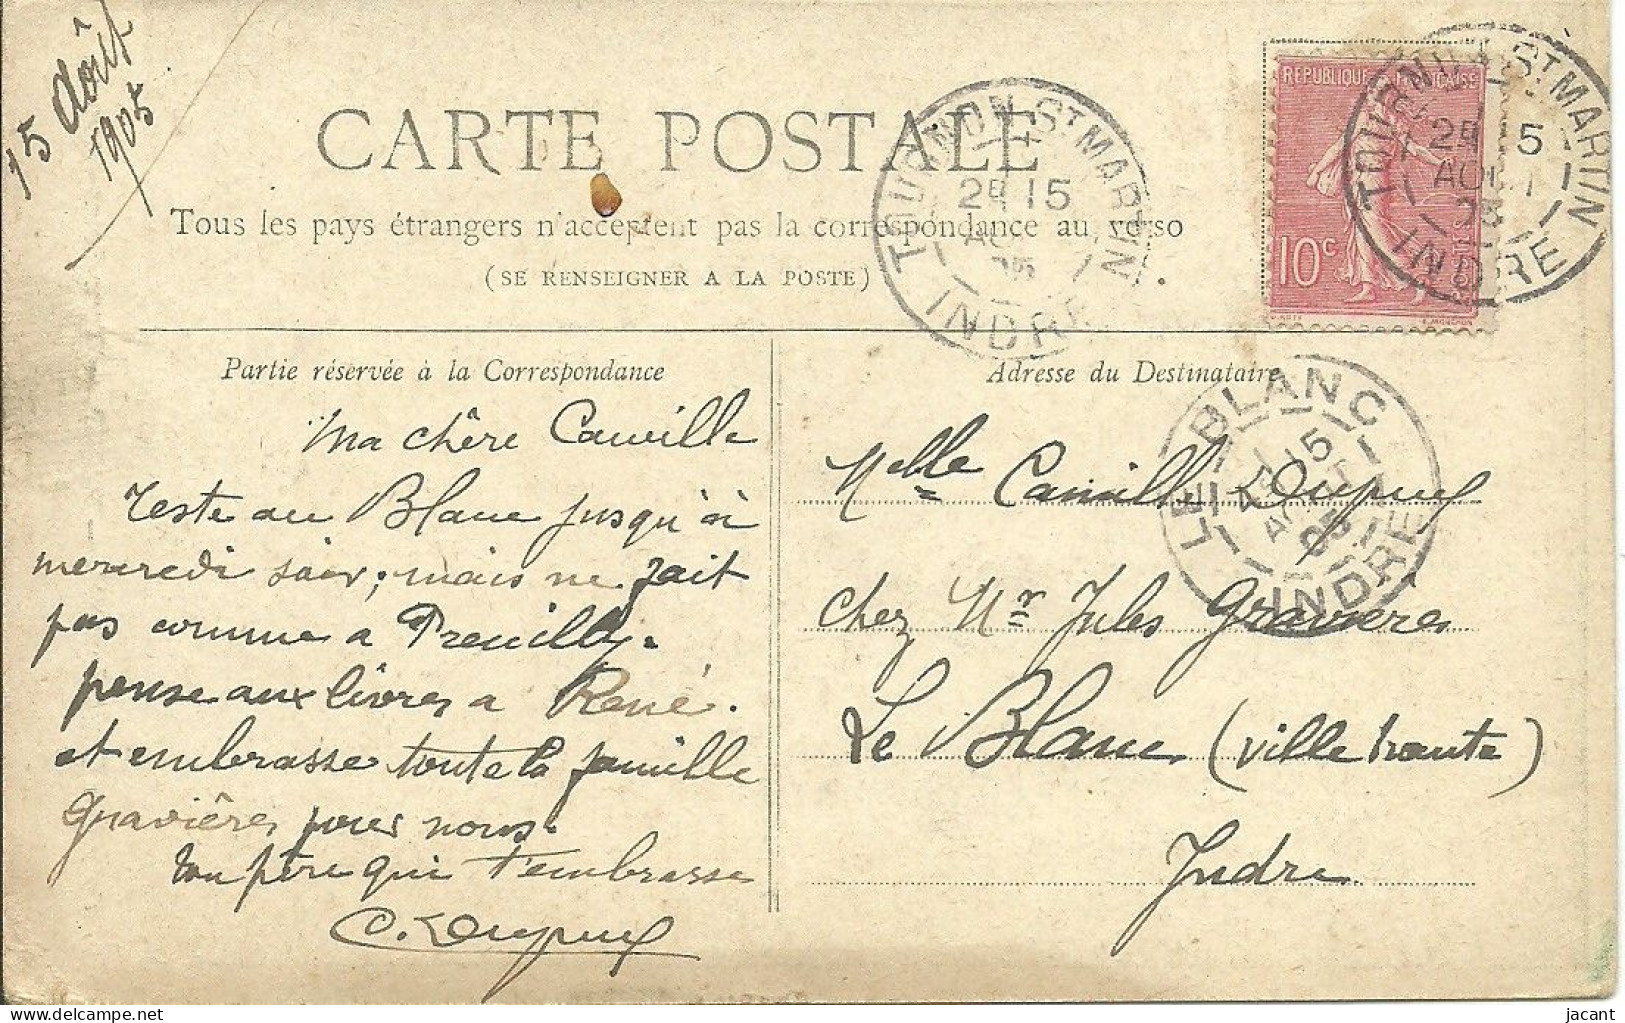 15 Août
1905
CARTE POSTALE
Tous les pays étrangers n'acceptent pas la correspondance au verso
(SE RENSEIGNER A LA POSTE)
TOURNON-ST MARTIN
2E 15
AOUT
05
INDRE
REPUBLIQUE FRANÇAISE
10c
POSTES
TOURNON-ST MARTIN
2E 15
AOUT
05
INDRE
Partie réservée à la Correspondance
Ma chère Camille
reste au Blanc jusqu'à
mercredi soir; mais ne fait
pas comme a Preuilly.
pense aux livres a René.
et embrasse toute la famille
Gravières pour nous.
ton père qui t'embrasse
C. Dupuy
Adresse du Destinataire
LE BLANC
15
AOUT
05
INDRE
Melle Camille Dupuy
chez Mr Jules Gravières
Le Blanc (ville haute)
Indre
jacant